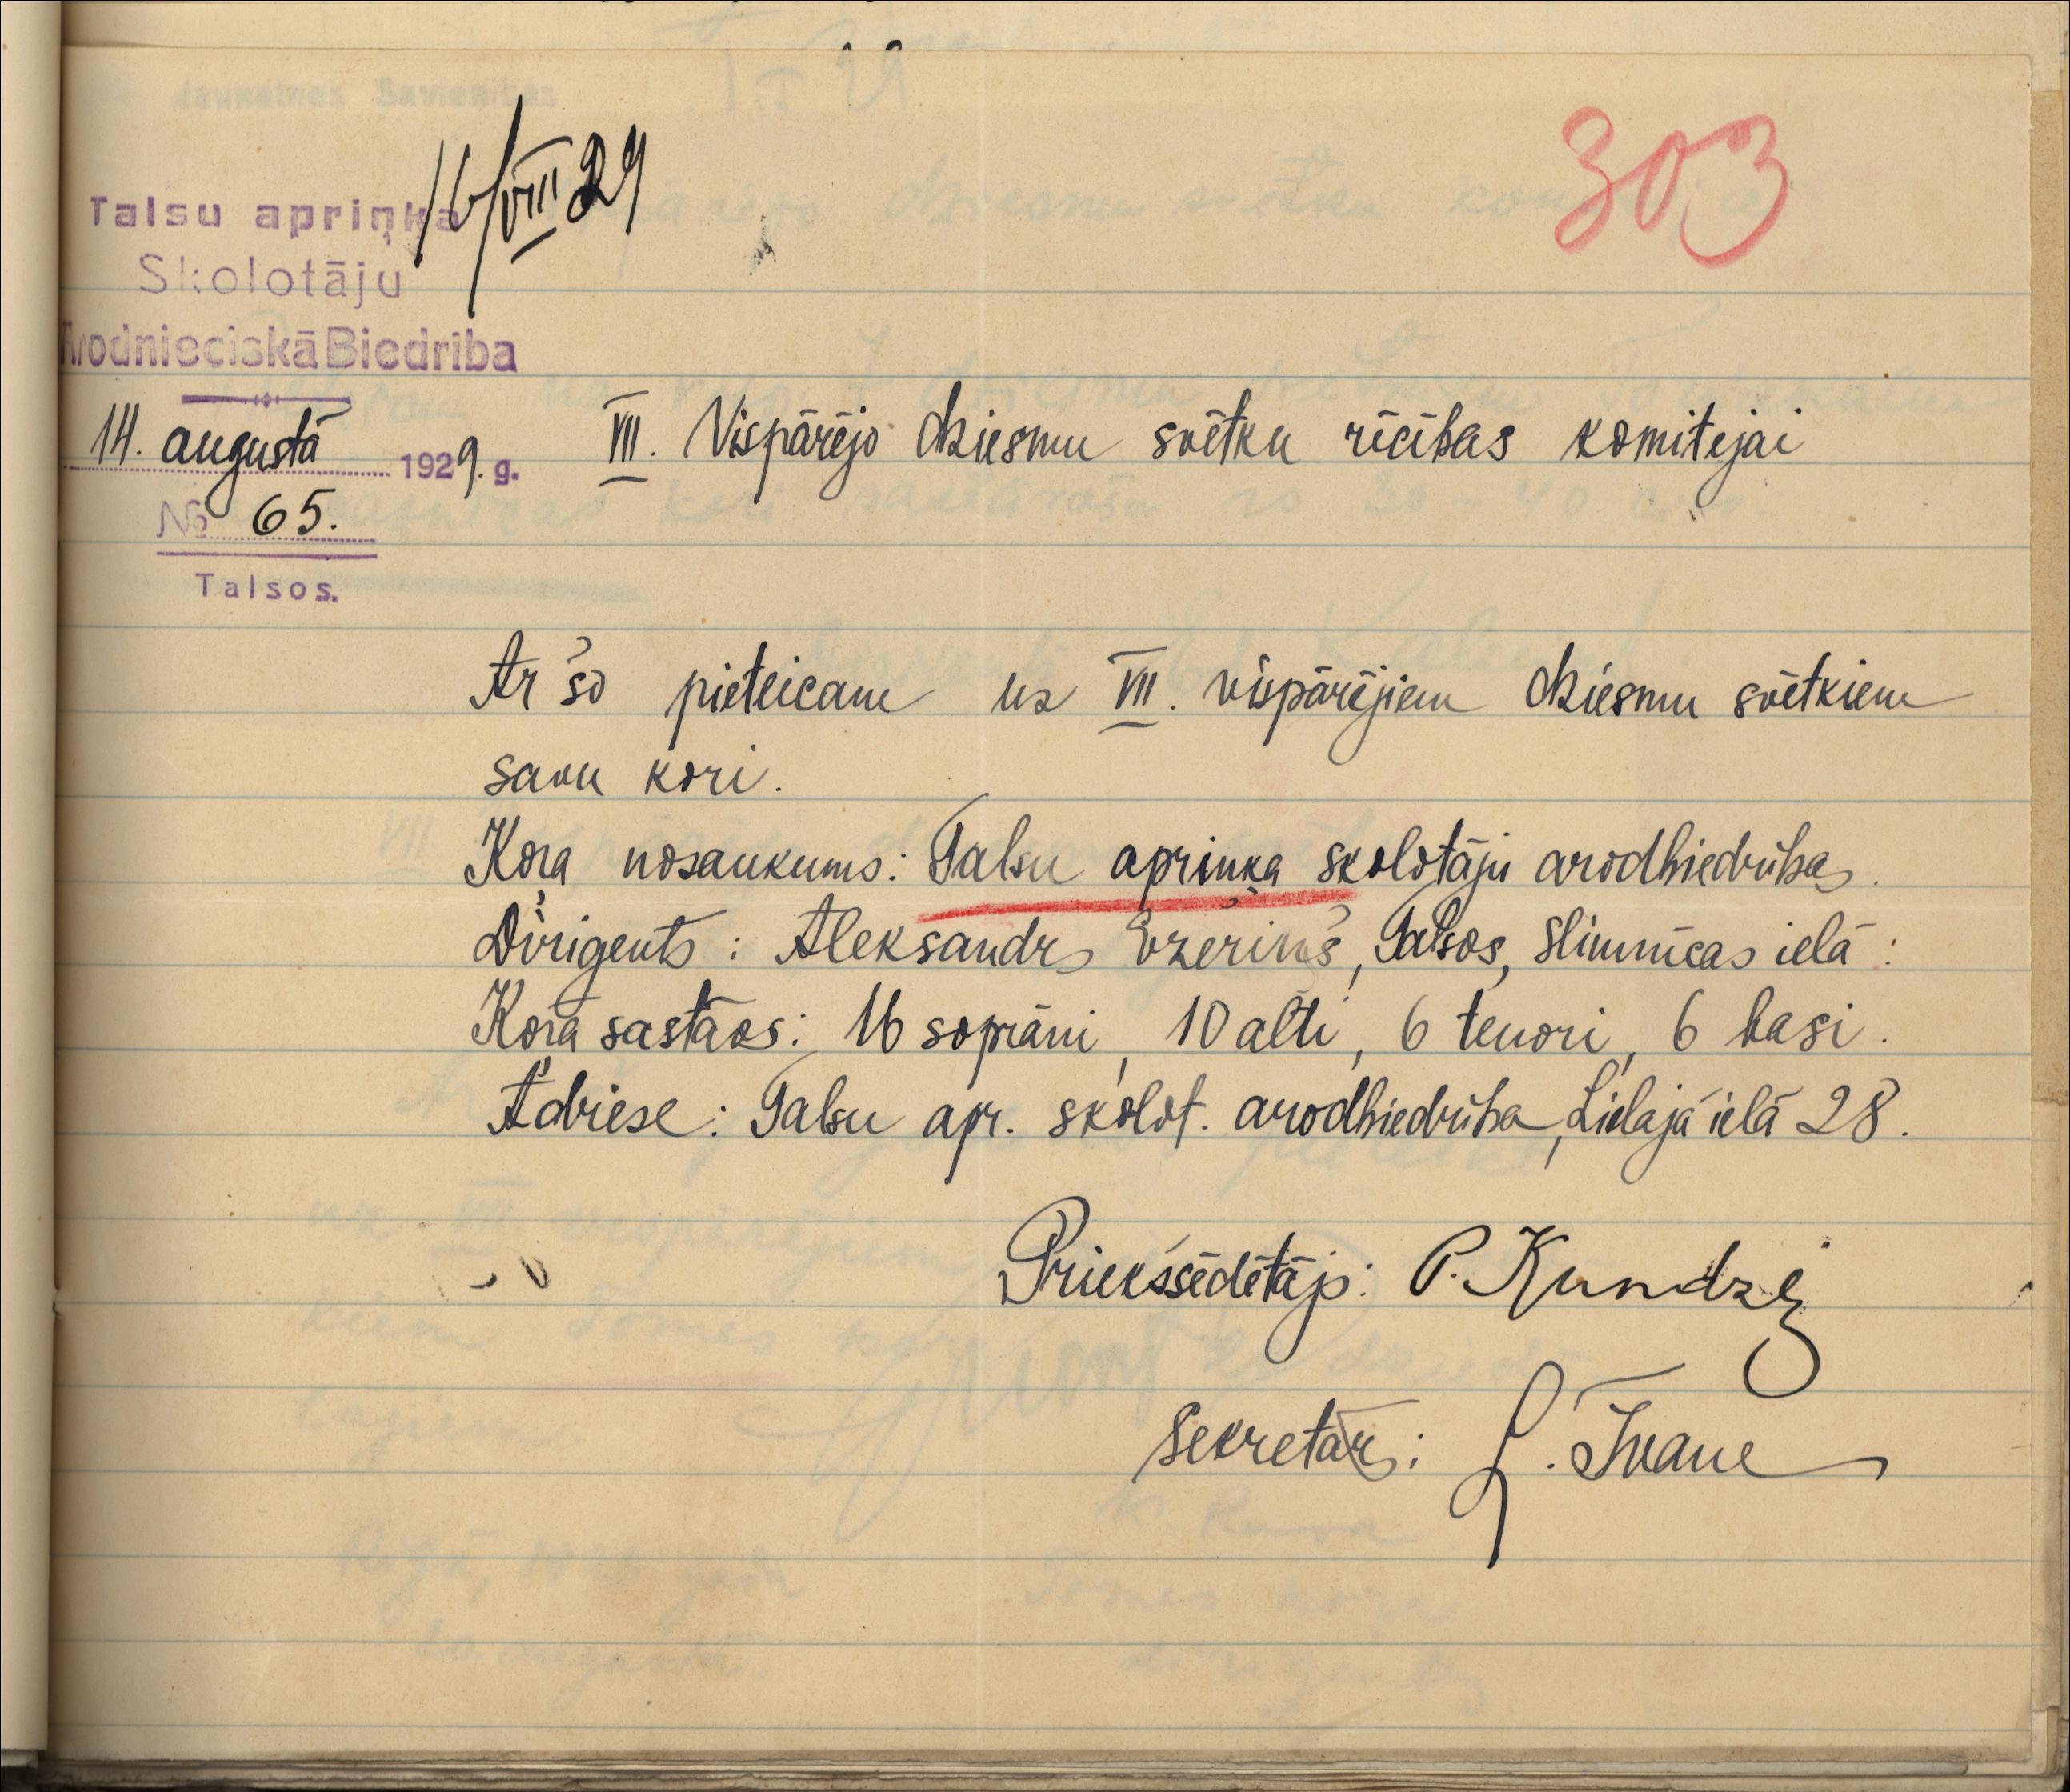 16/VIII 29
303
Talsu apriņķa
Skolotāju
Arodnieciskā Biedrība
14. augustā 1929. g.
№ 65.
Talsos.
VII. Vispārējo dziesmu svētku rīcības komitejai
Ar šo pieteicam uz VII. vispārējiem dziesmu svētkiem
savu kori.
Koŗa nosaukums: Talsu apriņķa skolotāju arodbiedrības.
Dirigents: Aleksandrs Ezeriņš, Talsos, Slimnīcas ielā:
Koŗa sastāvs: 16 soprāni, 10 alti, 6 tenori, 6 basi.
Adrese: Talsu apr. skolot. arodbiedrība, Lielajā ielā 28.
Priekšsēdētājs: P. Kundziņ
Sekretārs: L. Ivane